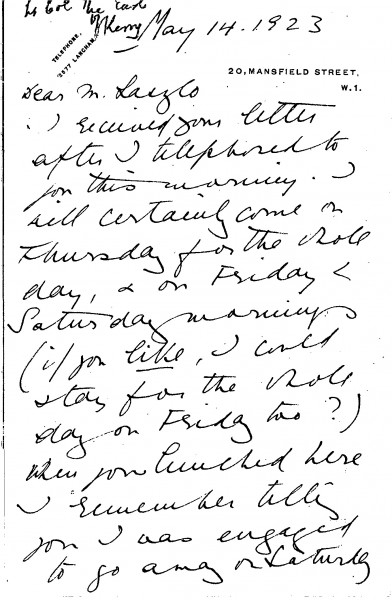 Lt Col The Earl
Kerry May 14. 1923
TELEPHONE,
2377 LANGHAM.
20, MANSFIELD STREET,
W.1.
Dear M. Laszlo
I received your letter
after I telephoned to
you this morning. I
will certainly come on
Thursday for the whole
day, & on Friday &
Saturday mornings
(if you like, I could
stay for the whole
day on Friday too?)
When you lunched here
I remember telling
you I was engaged
to go away on Saturday